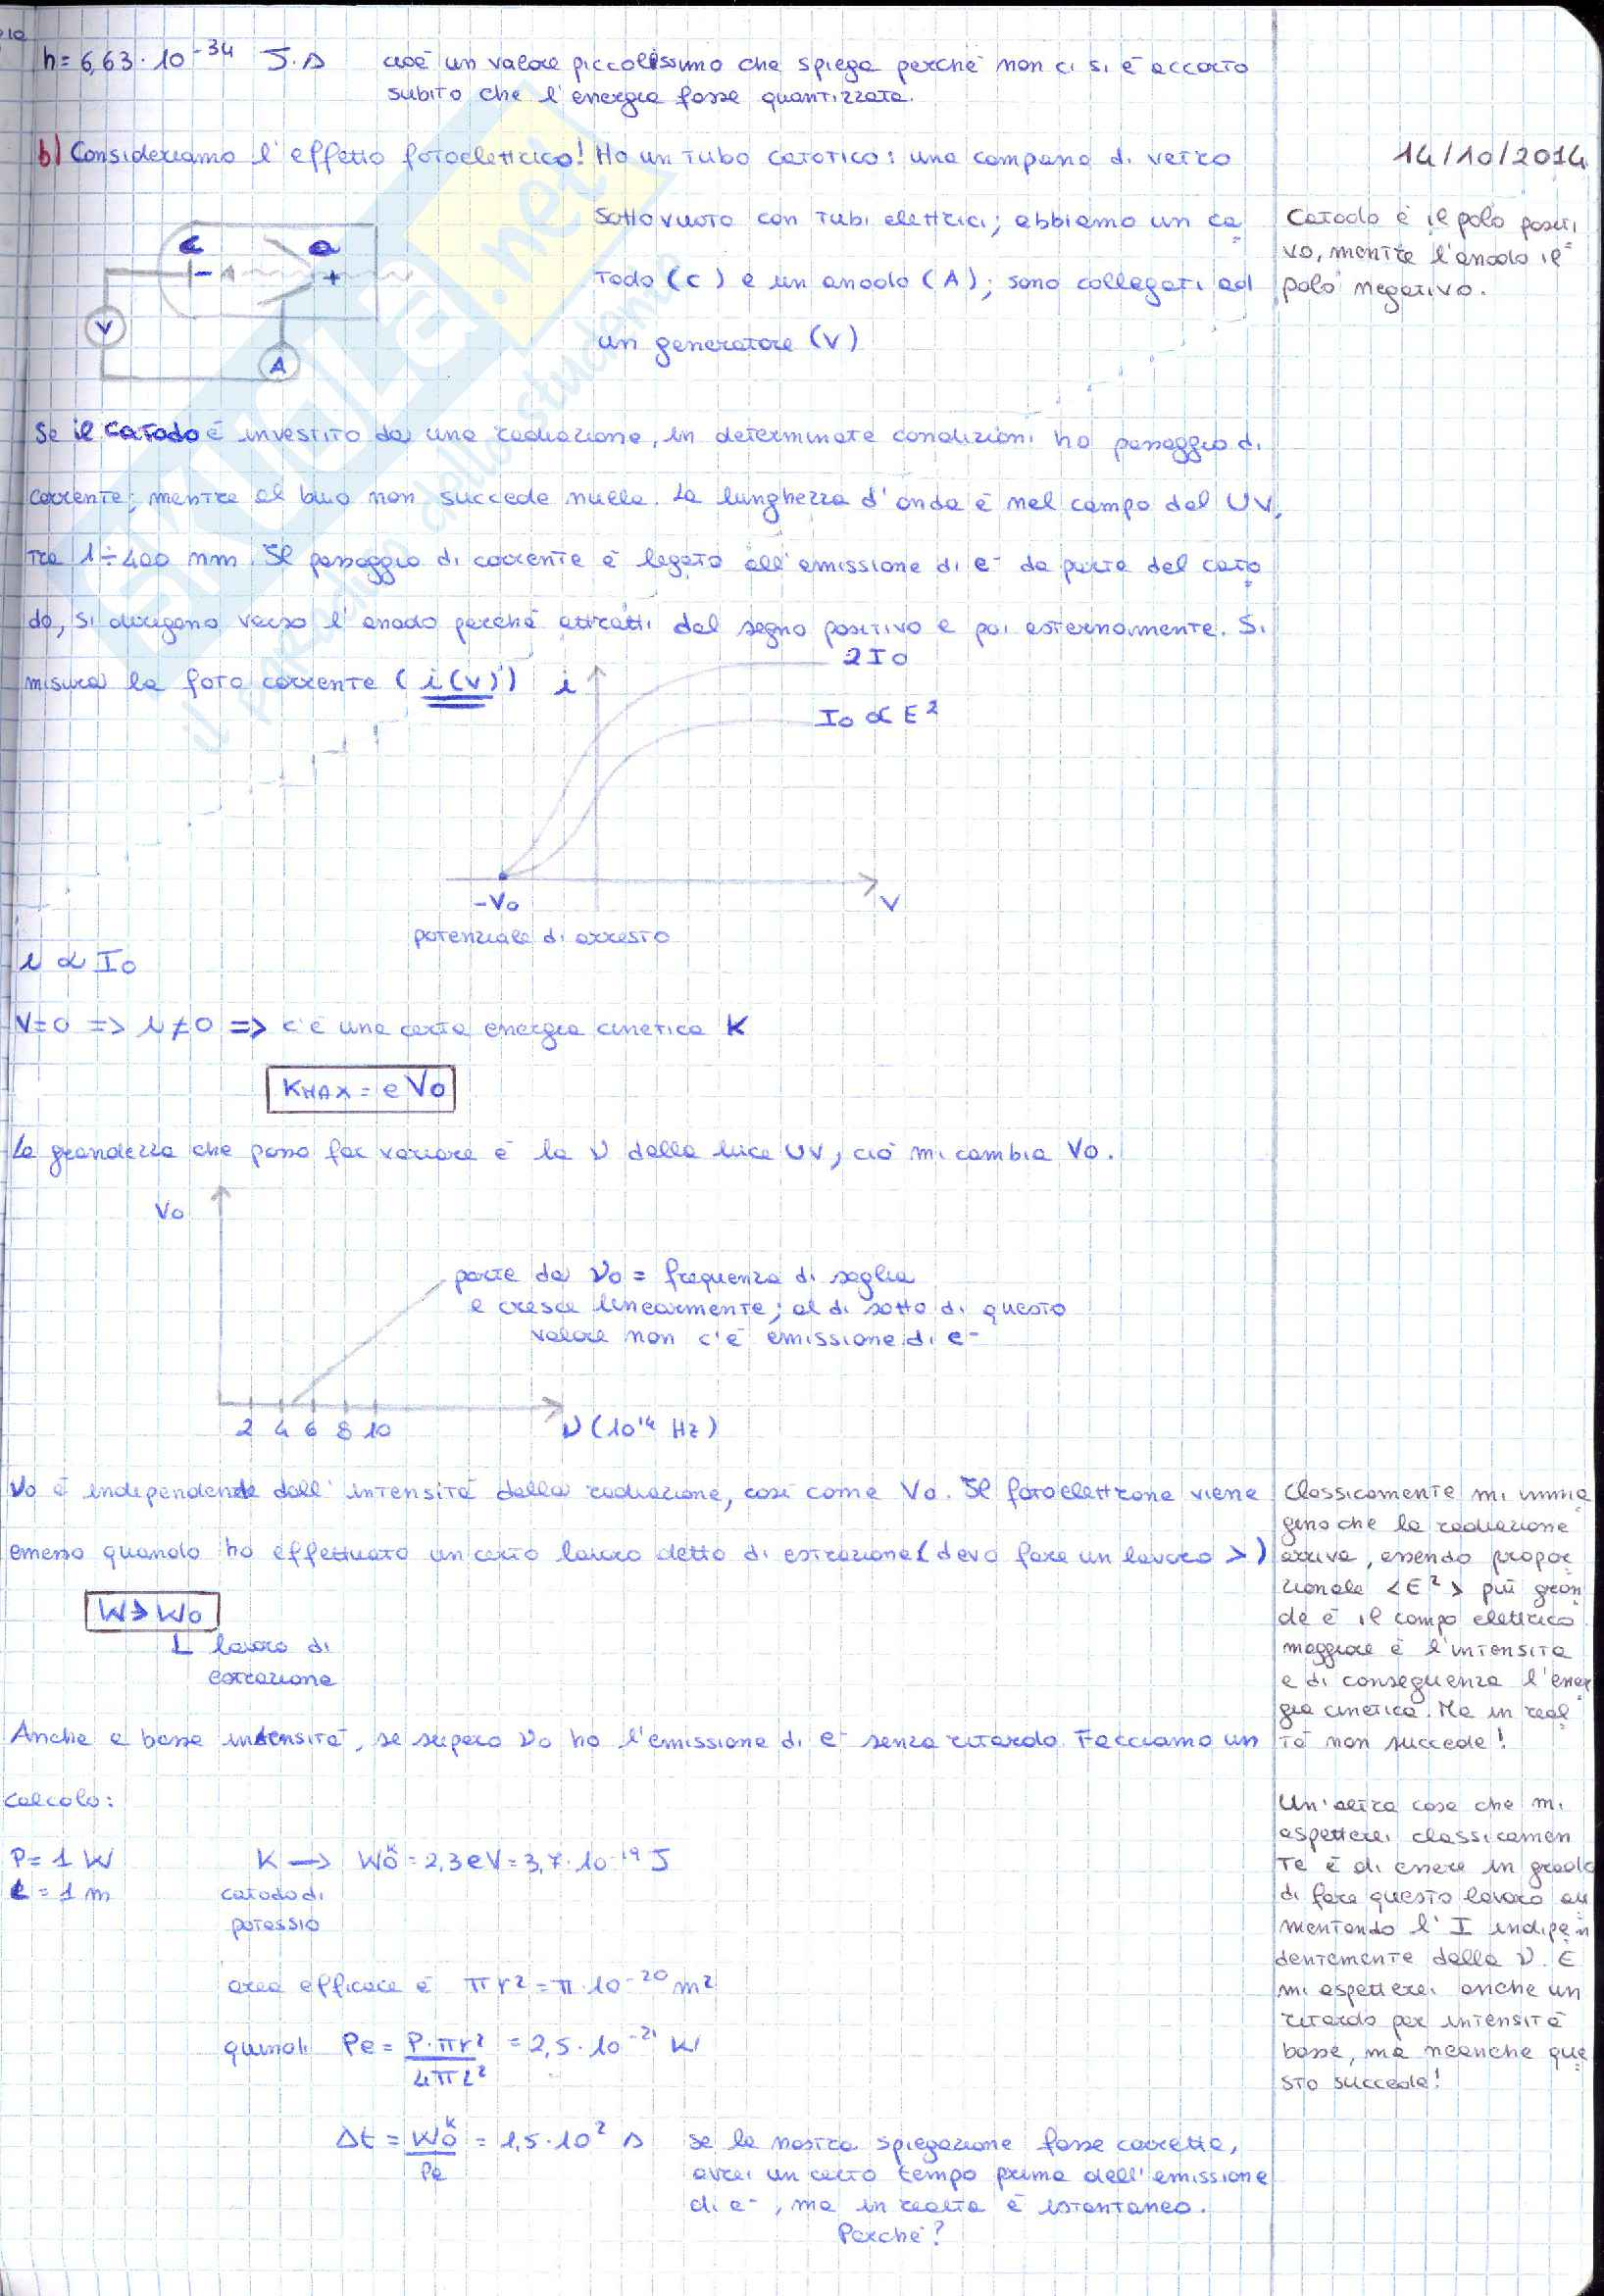 10
h = 6,63 · 10⁻³⁴ J·s cioè un valore piccolissimo che spiega perché non ci si è accorto
subito che l'energia fosse quantizzata.
b) Consideriamo l'effetto fotoelettrico! Ho un tubo catotico: una campana di vetro
14/10/2014
sottovuoto con tubi elettrici; abbiamo un ca
todo (c) e un anodo (A); sono collegati ad
un generatore (V)
Catodo è il polo positi
vo, mentre l'anodo il
polo negativo.
c a
- +
V
A
Se il catodo è investito da una radiazione, in determinate condizioni ho passaggio di
corrente; mentre al buio non succede nulla. La lunghezza d'onda è nel campo del UV,
tra 1÷400 nm. Il passaggio di corrente è legato all'emissione di e⁻ da parte del cato
do, si dirigono verso l'anodo perché attratti dal segno positivo e poi esternamente. Si
misura la foto corrente (i(V)) i
2I₀
I₀ ∝ E²
-V₀
V
potenziale di arresto
i ∝ I₀
V=0 => i≠0 => c'è una certa energia cinetica K
KMAX = eV₀
La grandezza che posso far variare è la ν della luce UV, ciò mi cambia V₀.
V₀
parte da ν₀ = frequenza di soglia
e cresce linearmente; al di sotto di questo
valore non c'è emissione di e⁻
2 4 6 8 10
ν (10¹⁴ Hz)
ν₀ è independente dall'intensità della radiazione, così come V₀. Il fotoelettrone viene
emesso quando ho effettuato un certo lavoro detto di estrazione (devo fare un lavoro >)
W > W₀
L lavoro di
estrazione
Anche a basse intensità, se supero ν₀ ho l'emissione di e⁻ senza ritardo. Facciamo un
calcolo:
Classicamente mi imma
gino che la radiazione
arriva, essendo propor
zionale <E²> più gran
de è il campo elettrico
maggiore è l'intensità
e di conseguenza l'ener
gia cinetica. Ma in real
tà non succede!
Un'altra cosa che mi
aspetterei classicamen
te è di essere in grado
di fare questo lavoro au
mentando l'I indipen
dentemente dalla ν. E
mi aspetterei anche un
ritardo per intensità
basse, ma neanche que
sto succede!
P = 1 W K → W₀ᴷ = 2,3 eV = 3,7 · 10⁻¹⁹ J
L = 1 m catodo di
potassio
area efficace è πr² = π · 10⁻²⁰ m²
quindi Pe = P·πr² / 4πL² = 2,5 · 10⁻²¹ W
Δt = W₀ᴷ / Pe = 1,5 · 10² s se la nostra spiegazione fosse corretta,
avrei un certo tempo prima dell'emissione
di e⁻, ma in realtà è istantaneo.
Perché?
A'ula.net
il paradiso dello studente